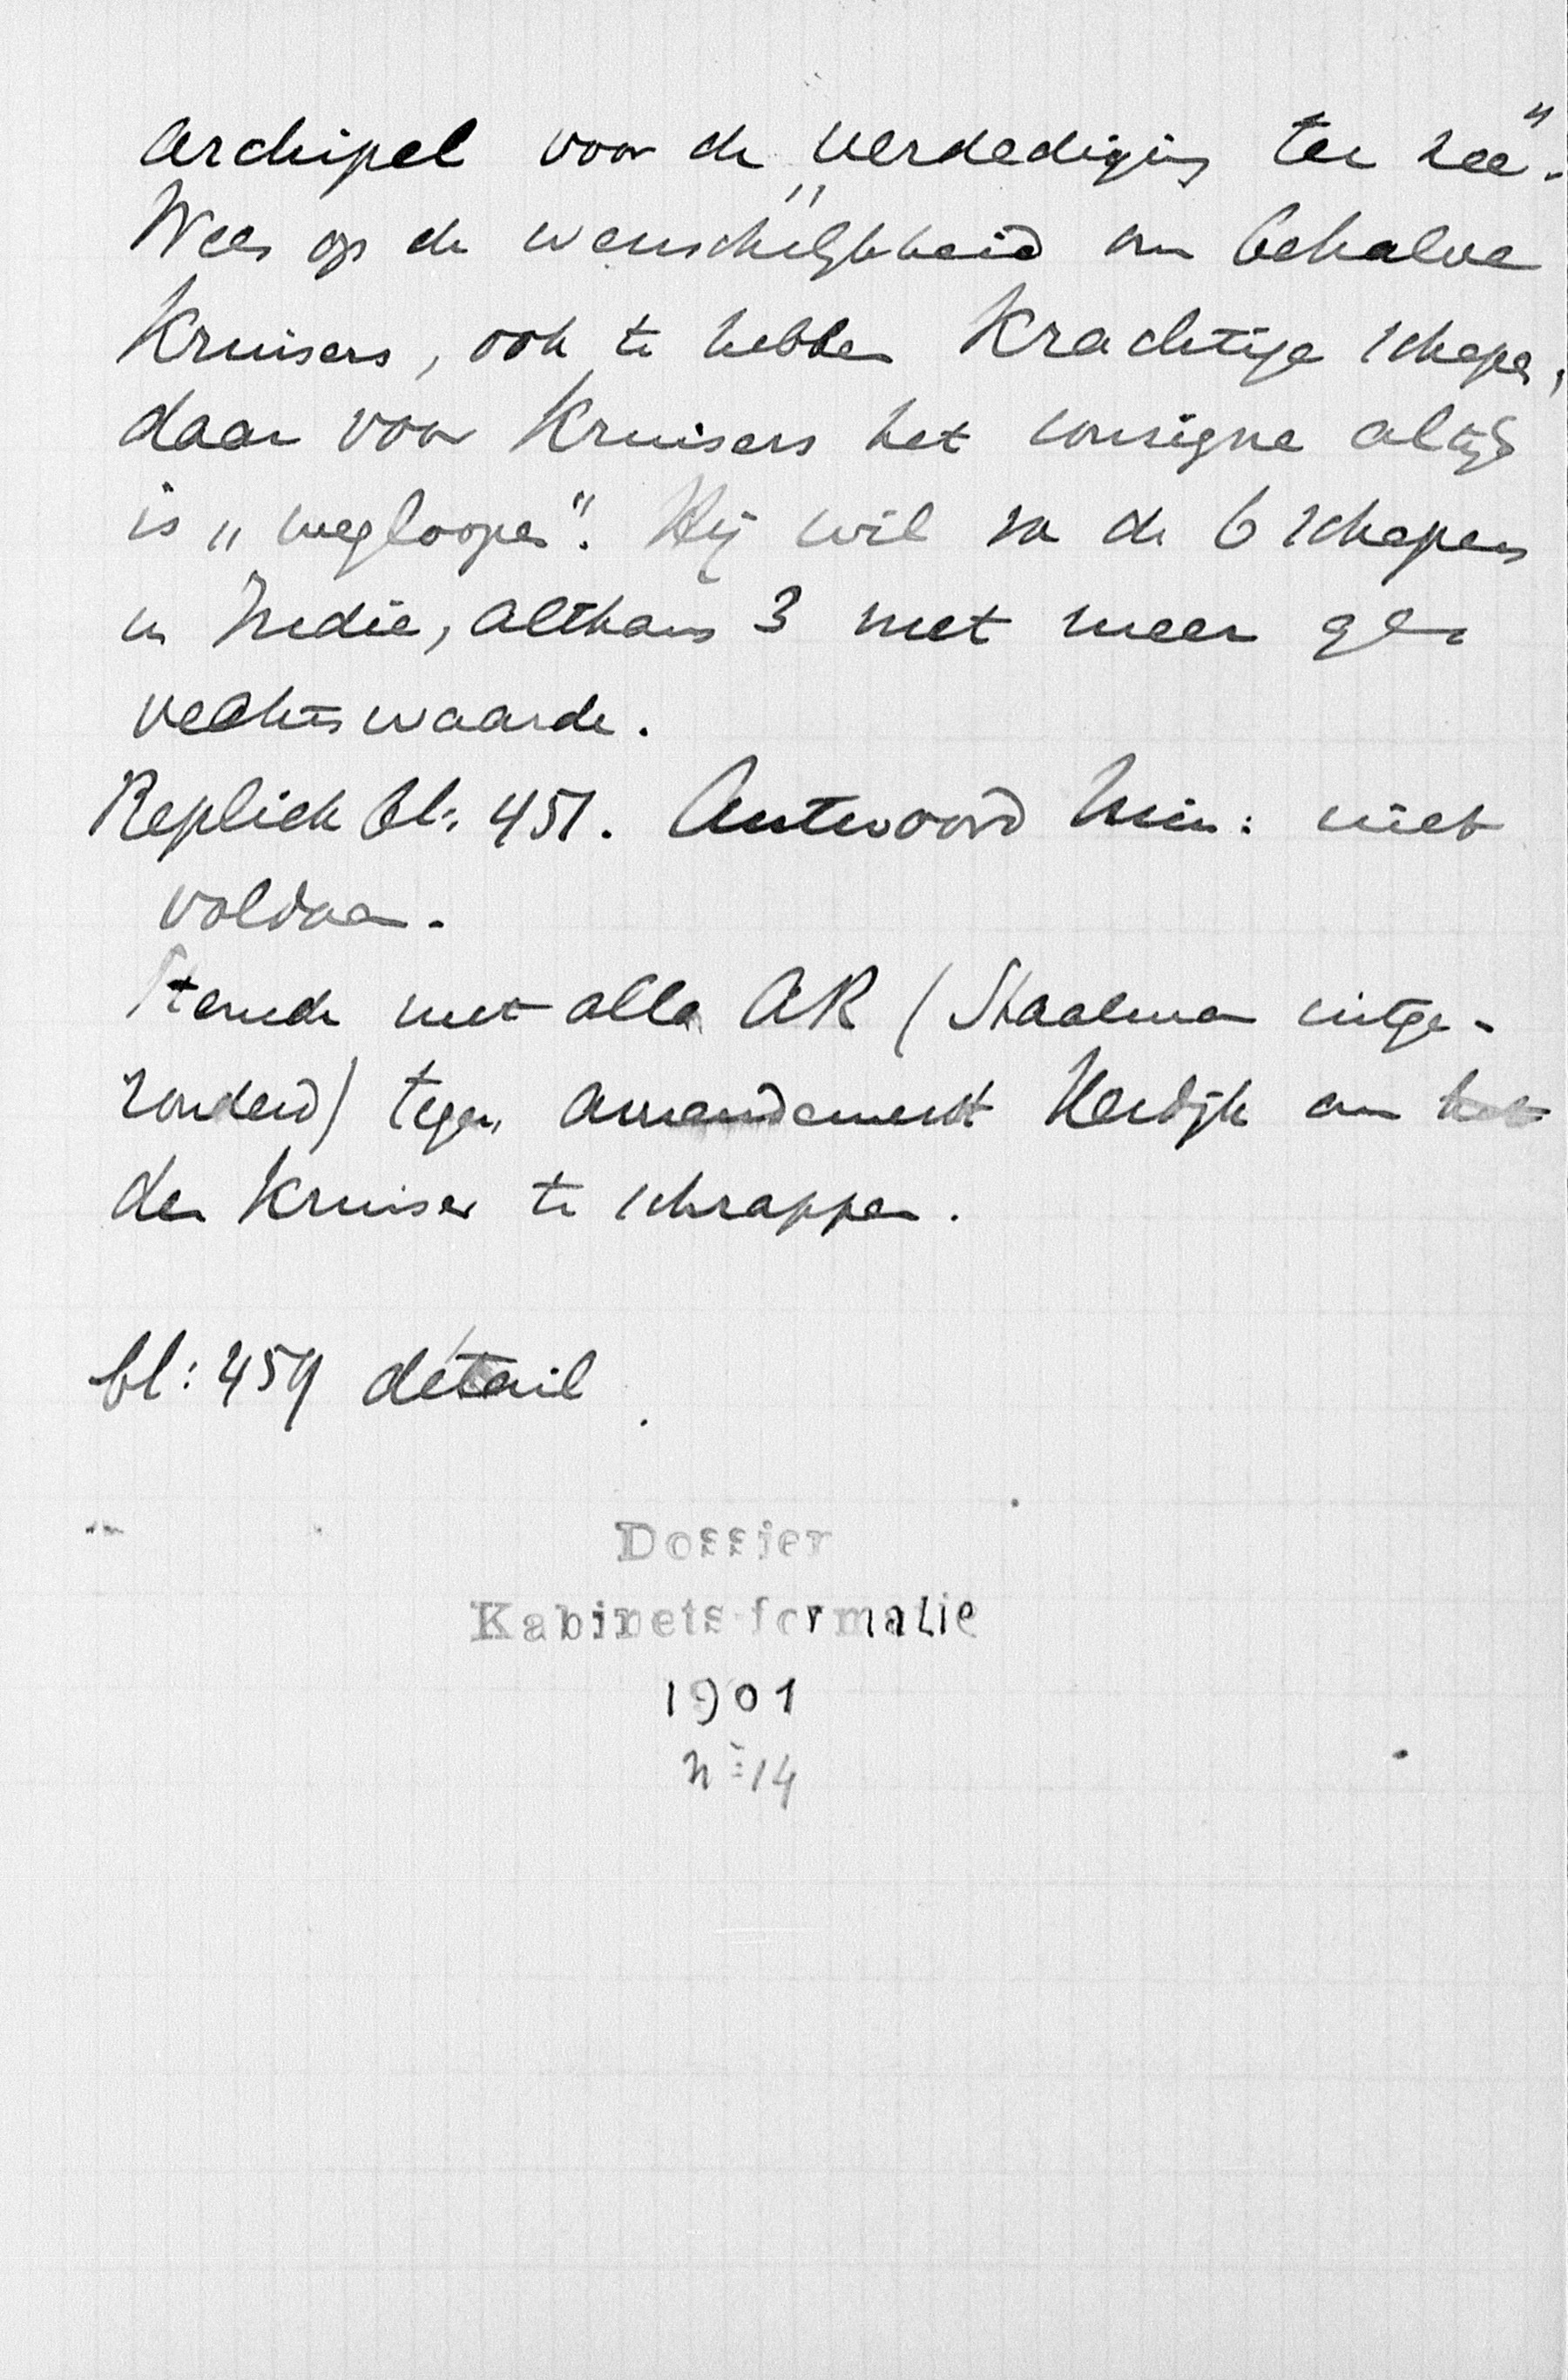 Archipel voor de „verdediging ter zee".
Wees op de wenschelijkheid om behalve
Kruisers, ook te hebben Krachtige schepen,
daar voor Kruisers het consigne altijd
is „wegloopen". Hij wil van de 6 schepen
in Indië, althans 3 met meer ge-
vechtswaarde.
Repliek bl. 451. Antwoord Min: niet
voldaan.
Stemde met alle AR (Staalman uitge-
zonderd) tegen amendement Kerdijk om het
den Kruiser te schrappen.
bl: 459 détail.
Dossier
Kabinetsformatie
1901
No 14